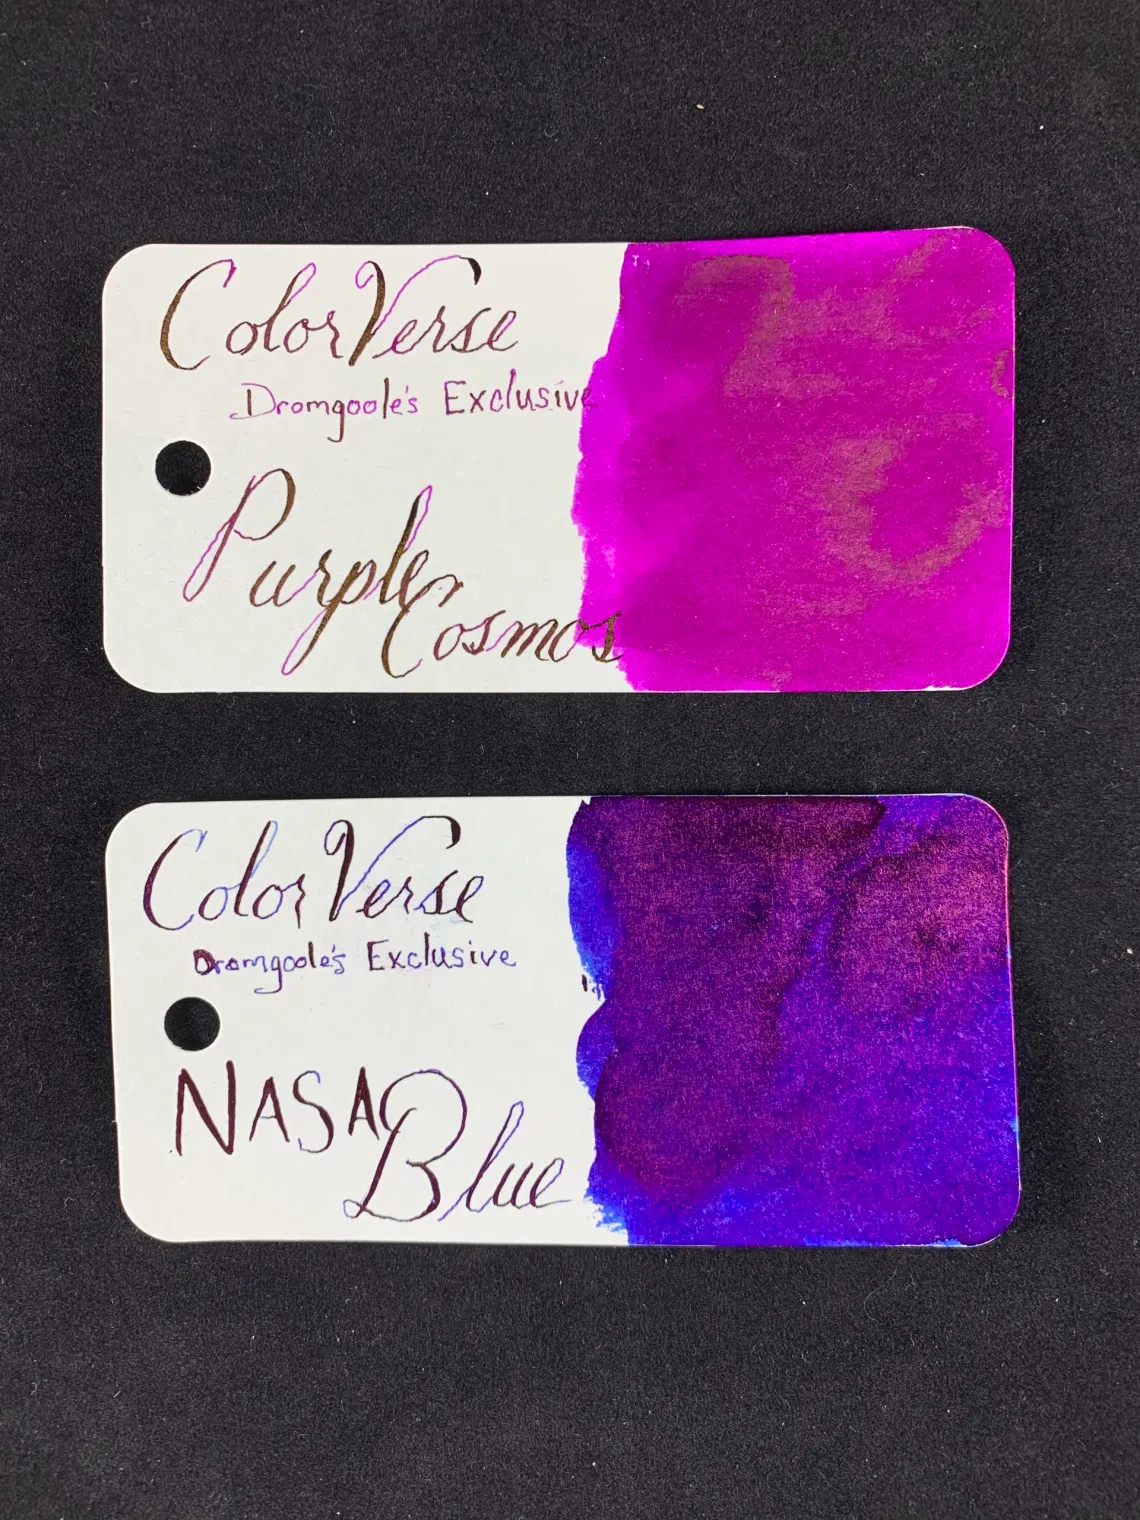 ColorVerse
Dromgoole's Exclusive
Purple
Cosmos
ColorVerse
Dromgoole's Exclusive
NASA
Blue